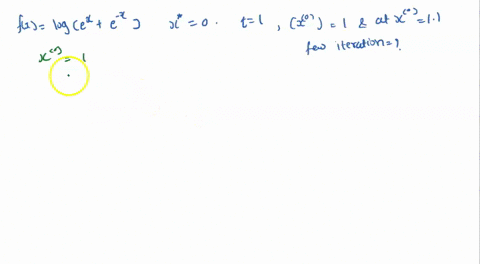 f(x) = log(e^x + e^-x) x* = 0. t=1, (x^(0)) = 1 & at x^(0) = 1.1
few iteration = ?
x^(0) = 1